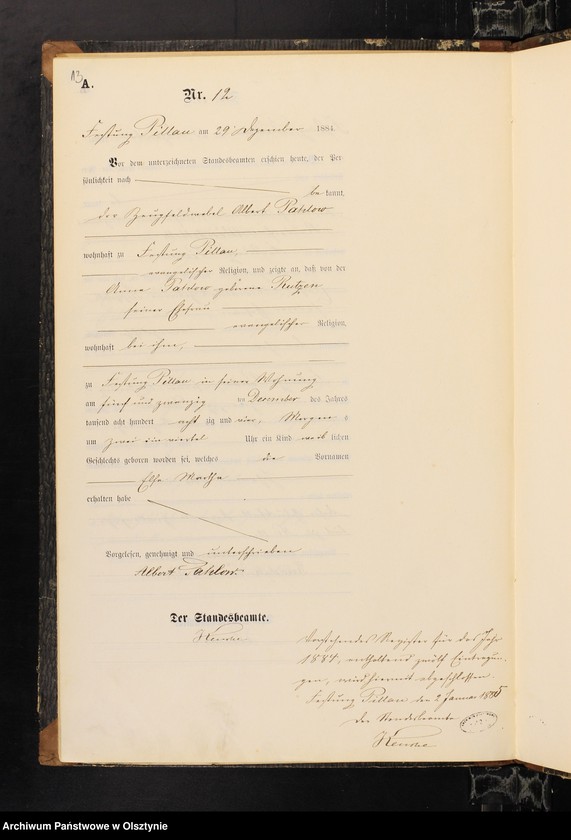 13
A.
Nr. 12
Festung Pillau am 29 Dezember 1884
Vor dem unterzeichneten Standesbeamten erschien heute, der Per-
sönlichkeit nach
be kannt,
der Zeugfeldwebel Albert Pahlow
wohnhaft zu Festung Pillau,
evangelischer Religion, und zeigte an, daß von der
Anna Pahlow geborene Rutzen
seiner Ehefrau
evangelischer Religion,
wohnhaft bei ihm,
zu Festung Pillau in seiner Wohnung
am fünf und zwanzig ten December des Jahres
tausend acht hundert acht zig und vier, Morgens
um zwei ein viertel Uhr ein Kind weib lichen
Geschlechts geboren worden sei, welches die Vornamen
Elsa Martha
erhalten habe
Vorgelesen, genehmigt und unterschrieben
Albert Pahlow.
Der Standesbeamte.
Vorstehendes Register für das Jahr
1884, enthaltend zwölf Eintragun-
gen, wird hiermit abgeschlossen.
Festung Pillau den 2 Januar 1885
Der Standesbeamte
Archiwum Państwowe w Olsztynie